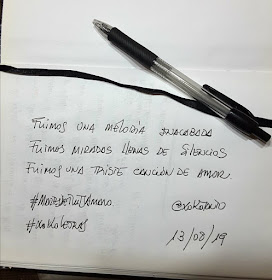 Fuimos una melodía inacabada
Fuimos miradas llenas de silencios
Fuimos una triste canción de amor.
@xoxotonio
#xoxoletras
13/08/19